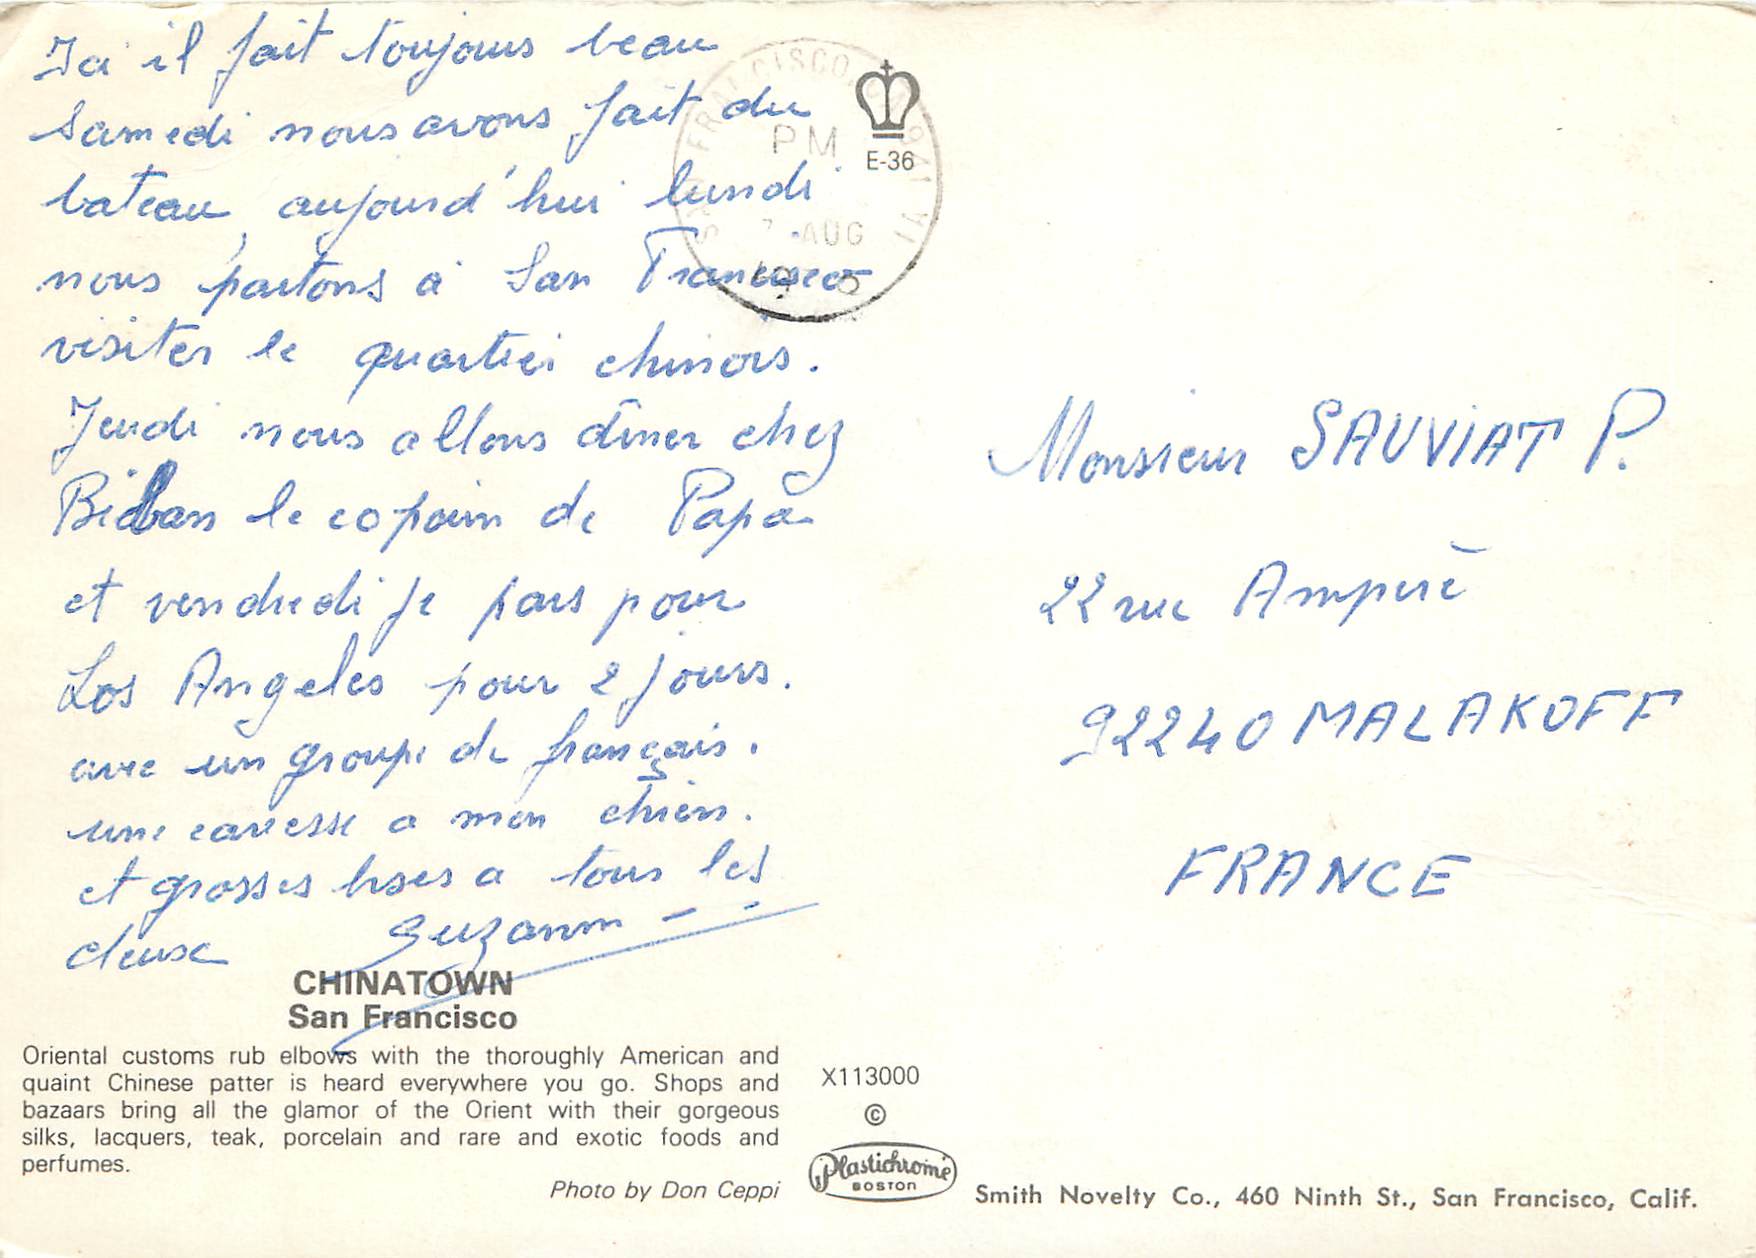 Ici il fait toujours beau
Samedi nous avons fait du
bateau, aujourd'hui lundi
nous partons à San Francisco
visiter le quartier chinois.
Jeudi nous allons dîner chez
le copain de Papa
et vendredi je pars pour
Los Angeles pour 2 jours.
avec un groupe de français.
une caresse a mon chien.
et grosses bises a tous les
deux Suzanne
SAN FRANCISCO, CA 941
PM
AUG
E-36
Monsieur SAUVIAT P.
22 rue Ampère
92240 MALAKOFF
FRANCE
CHINATOWN
San Francisco
Oriental customs rub elbows with the thoroughly American and
quaint Chinese patter is heard everywhere you go. Shops and
bazaars bring all the glamor of the Orient with their gorgeous
silks, lacquers, teak, porcelain and rare and exotic foods and
perfumes.
Photo by Don Ceppi
X113000
©
Plastichrome
BOSTON
Smith Novelty Co., 460 Ninth St., San Francisco, Calif.